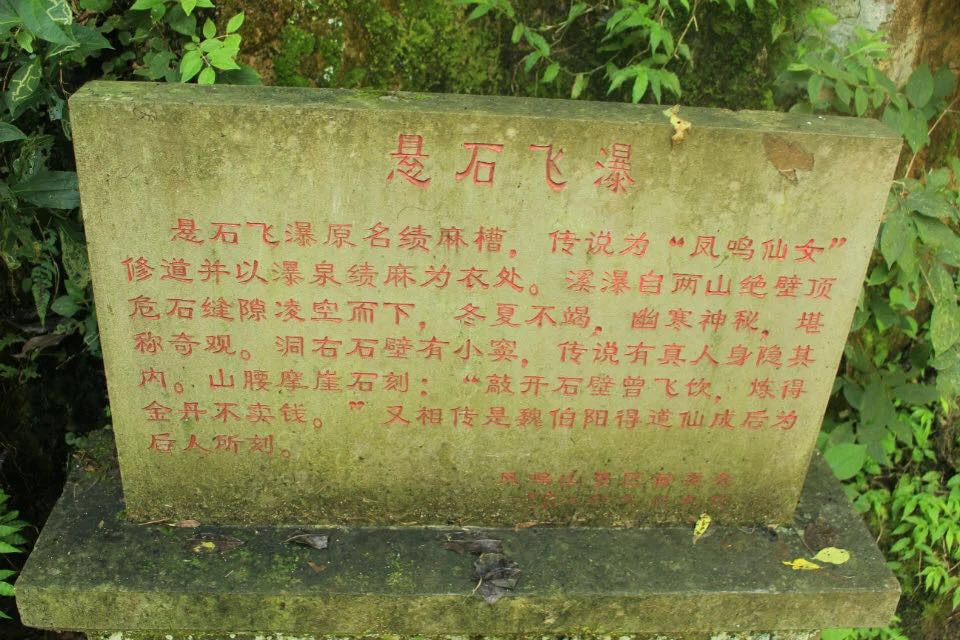 悬石飞瀑
悬石飞瀑原名绩麻槽，传说为“凤鸣仙女”
修道并以瀑泉绩麻为衣处。溪瀑自两山绝壁顶
危石缝隙凌空而下，冬夏不竭，幽寒神秘，堪
称奇观。洞右石壁有小窦，传说有真人身隐其
内。山腰摩崖石刻：“敲开石壁曾飞饮，炼得
金丹不卖钱。”又相传是魏伯阳得道仙成后为
后人所刻。
凤鸣山景区管委会